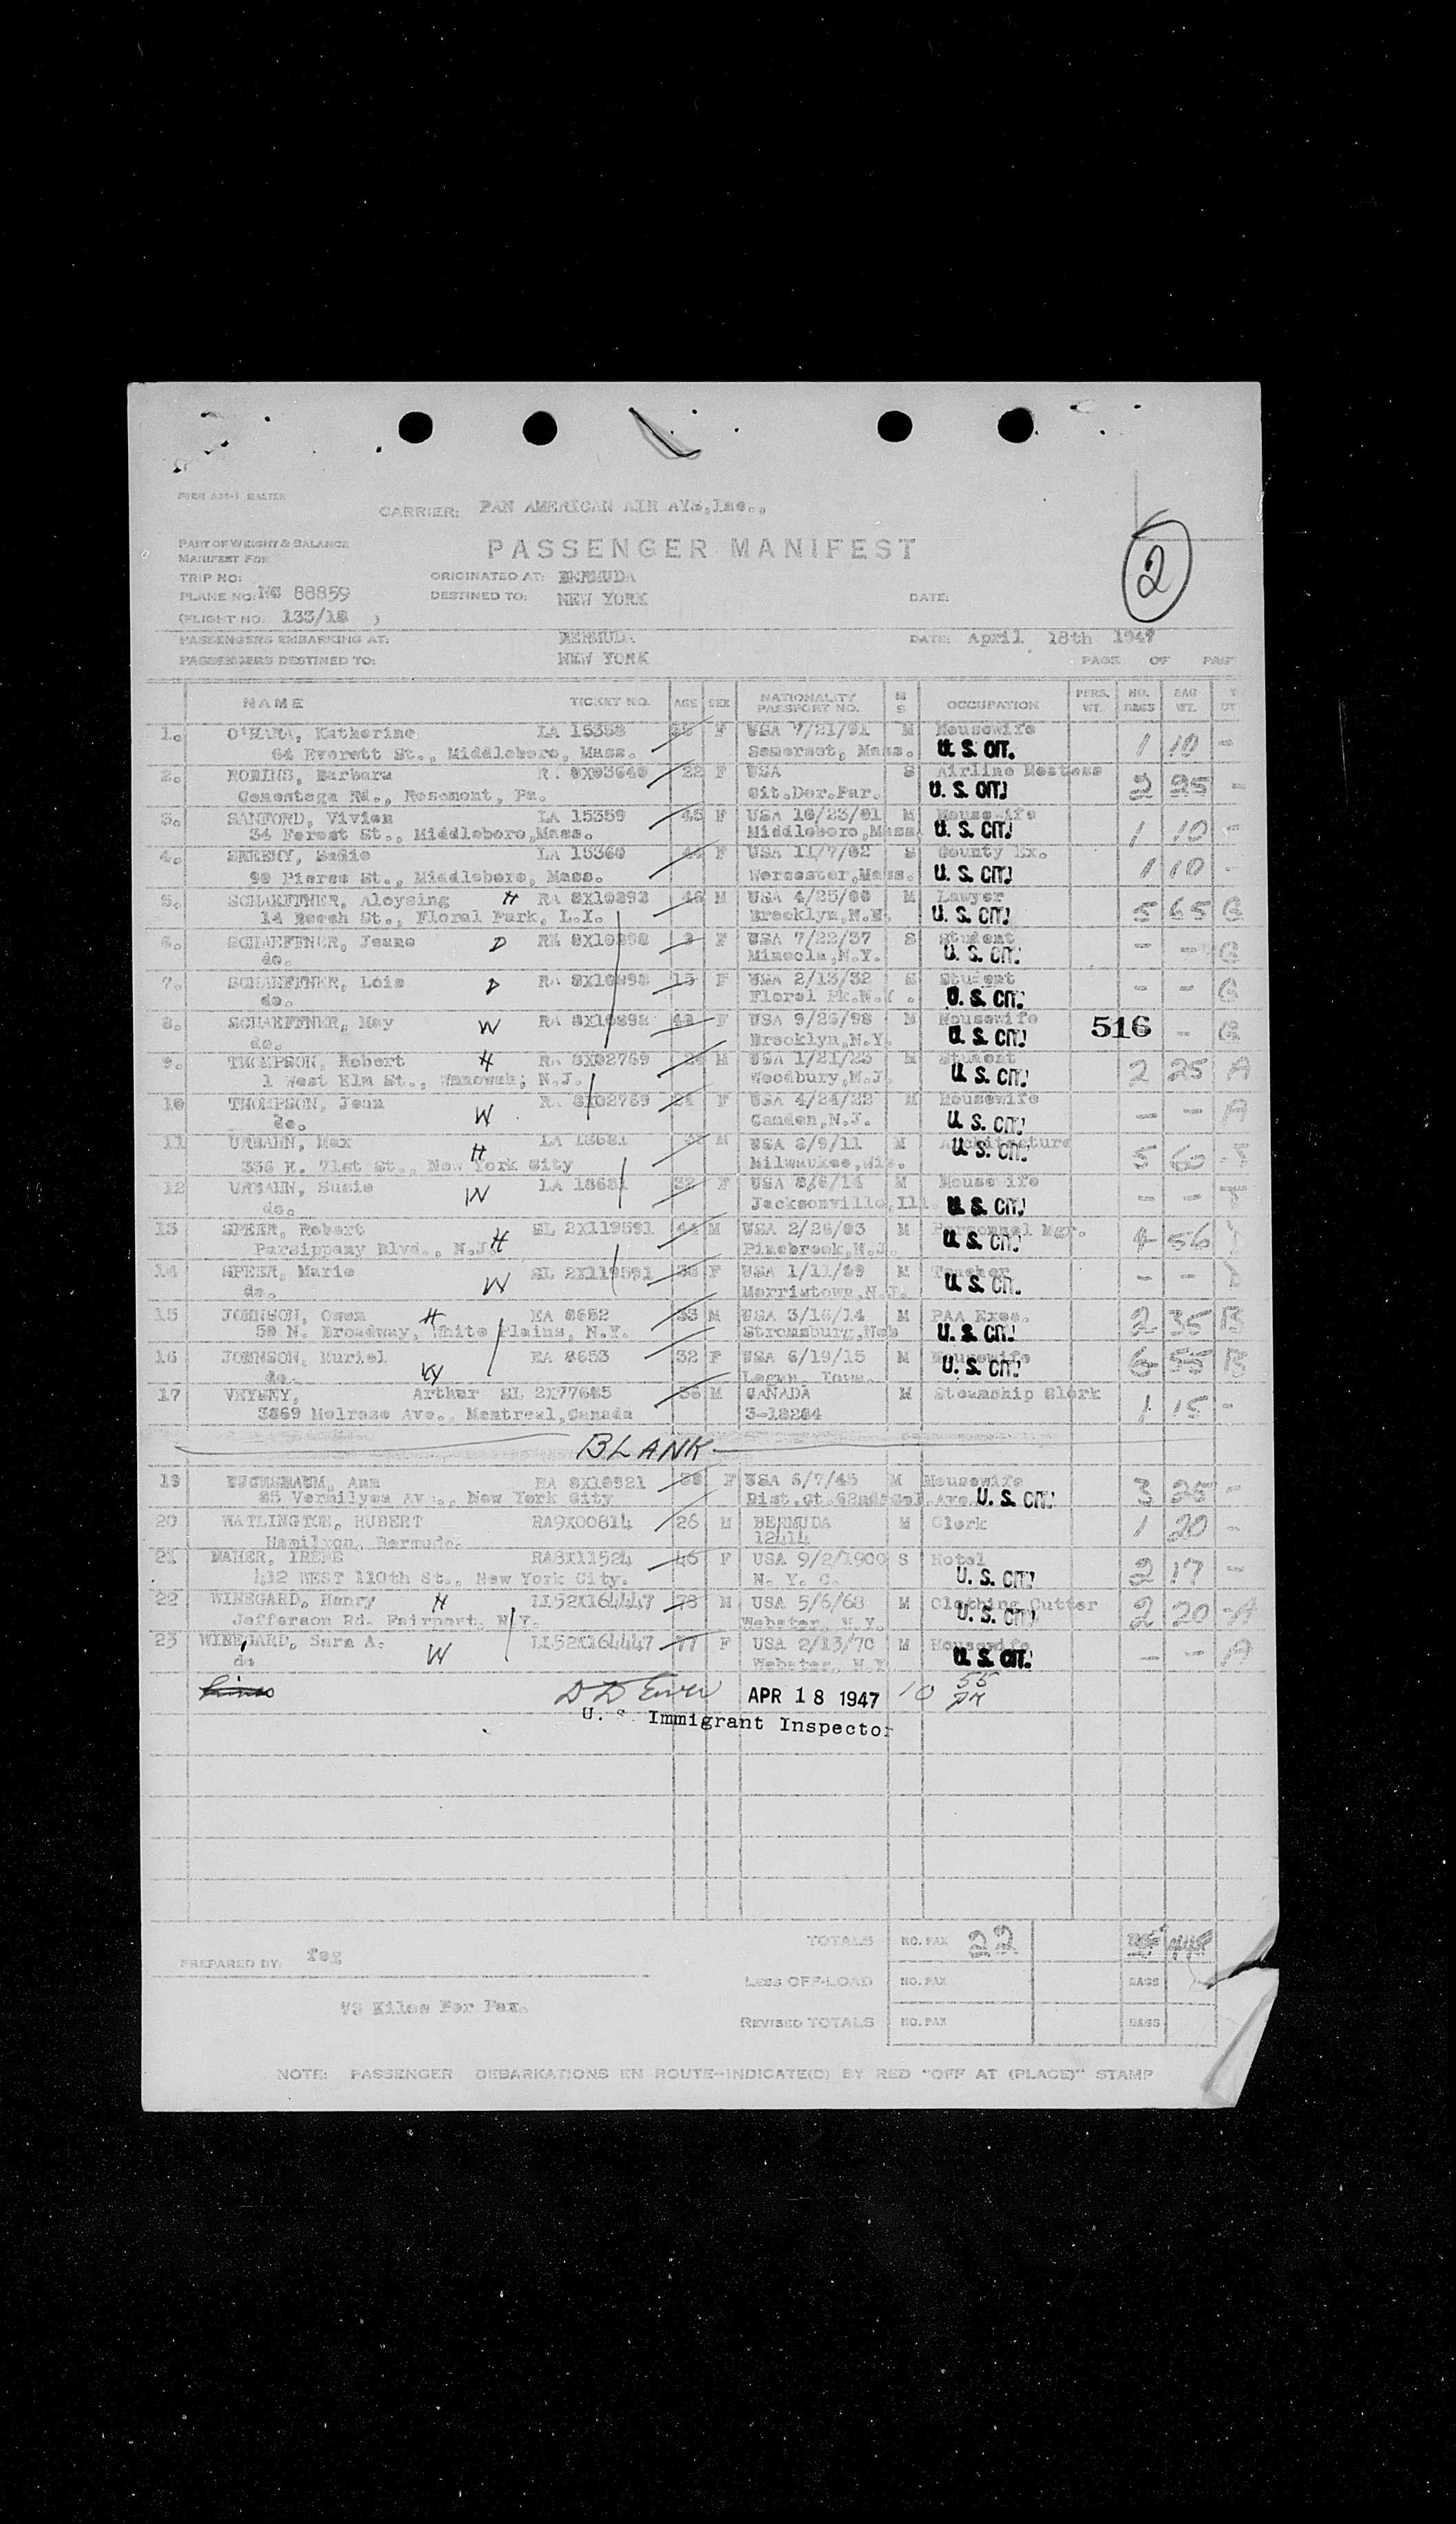 FORM ASC-1 MASTER
CARRIER: PAN AMERICAN AIR AYS,Inc.,
PART OF WEIGHT & BALANCE
MANIFEST FOR
PASSENGER MANIFEST
2
TRIP NO:
ORIGINATED AT: BERMUDA
PLANE NO: NC 88859
DESTINED TO: NEW YORK
DATE:
(FLIGHT NO: 133/18 )
PASSENGERS EMBARKING AT: BERMUDA
DATE: April 18th 1947
PASSENGERS DESTINED TO: NEW YORK
PAGE OF PAG
NAME TICKET NO. AGE SEX NATIONALITY PASSPORT NO. M S OCCUPATION PERS. WT. NO. BAGS BAG WT.
1. O'HARA, Katherine LA 15358 F USA 7/21/91 M Housewife
64 Everett St., Middleboro, Mass. Somerset, Mass. U. S. CIT. 1 10 -
2. ROBINS, Barbara 22 F USA S Airline Hostess
Conestoga Rd., Rosemont, Pa. Cit.Der.Par. U. S. CIT. 2 25 -
3. SANFORD, Vivien LA 15359 45 F USA 10/23/01 M Housewife
34 Forest St., Middleboro,Mass. Middleboro,Mass. U. S. CIT. 1 10 -
4. Sadie LA 15360 44 F USA 11/7/02 S County Ex.
90 Pierce St., Middleboro, Mass. Worcester,Mass. U. S. CIT. 1 10 -
5. SCHAEFFNER, Aloysing H RA 8X10892 46 M USA 4/25/00 M Lawyer
14 Beech St., Floral Park, L.I. Brooklyn,N.Y. U. S. CIT. 5 65 G
6. SCHAEFFNER, Jeane D 9 F USA 7/22/37 S Student
do. Mineola,N.Y. U. S. CIT. - - G
7. SCHAEFFNER, Lois D 15 F USA 2/13/32 S Student
do. Floral Pk.N.Y. U. S. CIT. - - G
8. SCHAEFFNER, May W RA 8X10892 48 F USA 9/26/98 M Housewife
do. Brooklyn,N.Y. U. S. CIT. 516 - G
9. THOMPSON, Robert H RA 8X02769 M USA 1/21/23 M Student
1 West Elm St., Wenowah; N.J. Woodbury,N.J. U. S. CIT. 2 25 A
10 THOMPSON, Jean W RA 8X02769 24 F USA 4/24/22 M Housewife
do. Camden,N.J. U. S. CIT. - - A
11 URBAIN, Max H LA 18681 M USA 8/9/11 M Architecture
336 E. 71st St., New York City Milwaukee,Wis. U. S. CIT. 5 60 T
12 URBAIN, Susie W LA 18681 32 F USA 8/6/14 M Housewife
do. Jacksonville,Ill. U. S. CIT. - - T
13 SPEER, Robert H SL 2X119591 44 M USA 2/26/03 M Personnel Mgr.
Parsippany Blvd., N.J. Pinebrook,N.J. U. S. CIT. 4 56
14 SPEER, Marie W SL 2X119591 38 F USA 1/11/09 M Teacher
do. Morristown,N.J. U. S. CIT. - -
15 JOHNSON, Owen H EA 8652 33 M USA 3/16/14 M PAA Exec.
50 N. Broadway, White Plains, N.Y. Stromsburg,Neb U. S. CIT. 2 35 B
16 JOHNSON, Muriel W EA 8653 32 F USA 6/19/15 M Housewife
do. Logan, Iowa. U. S. CIT. 6 55 B
17 VEYSEY, Arthur SL 2X77685 36 M CANADA M Steamship Clerk
3869 Melrose Ave., Montreal,Canada 3-18264 1 15 -
BLANK
19 Ann RA 8X10921 F USA 6/7/45 M Housewife
85 Vermilyea Ave., New York City Dist.Ct. U. S. CIT. 3 25 -
20 WATLINGTON, HUBERT RA9X00814 26 M BERMUDA M Clerk
Hamilton, Bermuda. 12414 1 20 -
21 MAHER, IRENE RA8X11524 46 F USA 9/2/1900 S Hotel
412 WEST 110th St., New York City. N. Y. C. U. S. CIT. 2 17 -
22 WINEGARD, Henry H LL52X164447 78 M USA 5/6/68 M Clothing Cutter
Jefferson Rd. Fairport, N.Y. Webster, N.Y. U. S. CIT. 2 20 A
23 WINEGARD, Sara A. W LL52X164447 77 F USA 2/13/70 M Housewife
do Webster, N.Y U. S. CIT. - - A
APR 18 1947 10 55
U. S. Immigrant Inspector
TOTALS NO. PAX 22
PREPARED BY: feg
LESS OFF-LOAD NO. PAX BAGS
73 Kilos Per Pax.
REVISED TOTALS NO. PAX BAGS
NOTE: PASSENGER DEBARKATIONS EN ROUTE--INDICATE(D) BY RED "OFF AT (PLACE)" STAMP